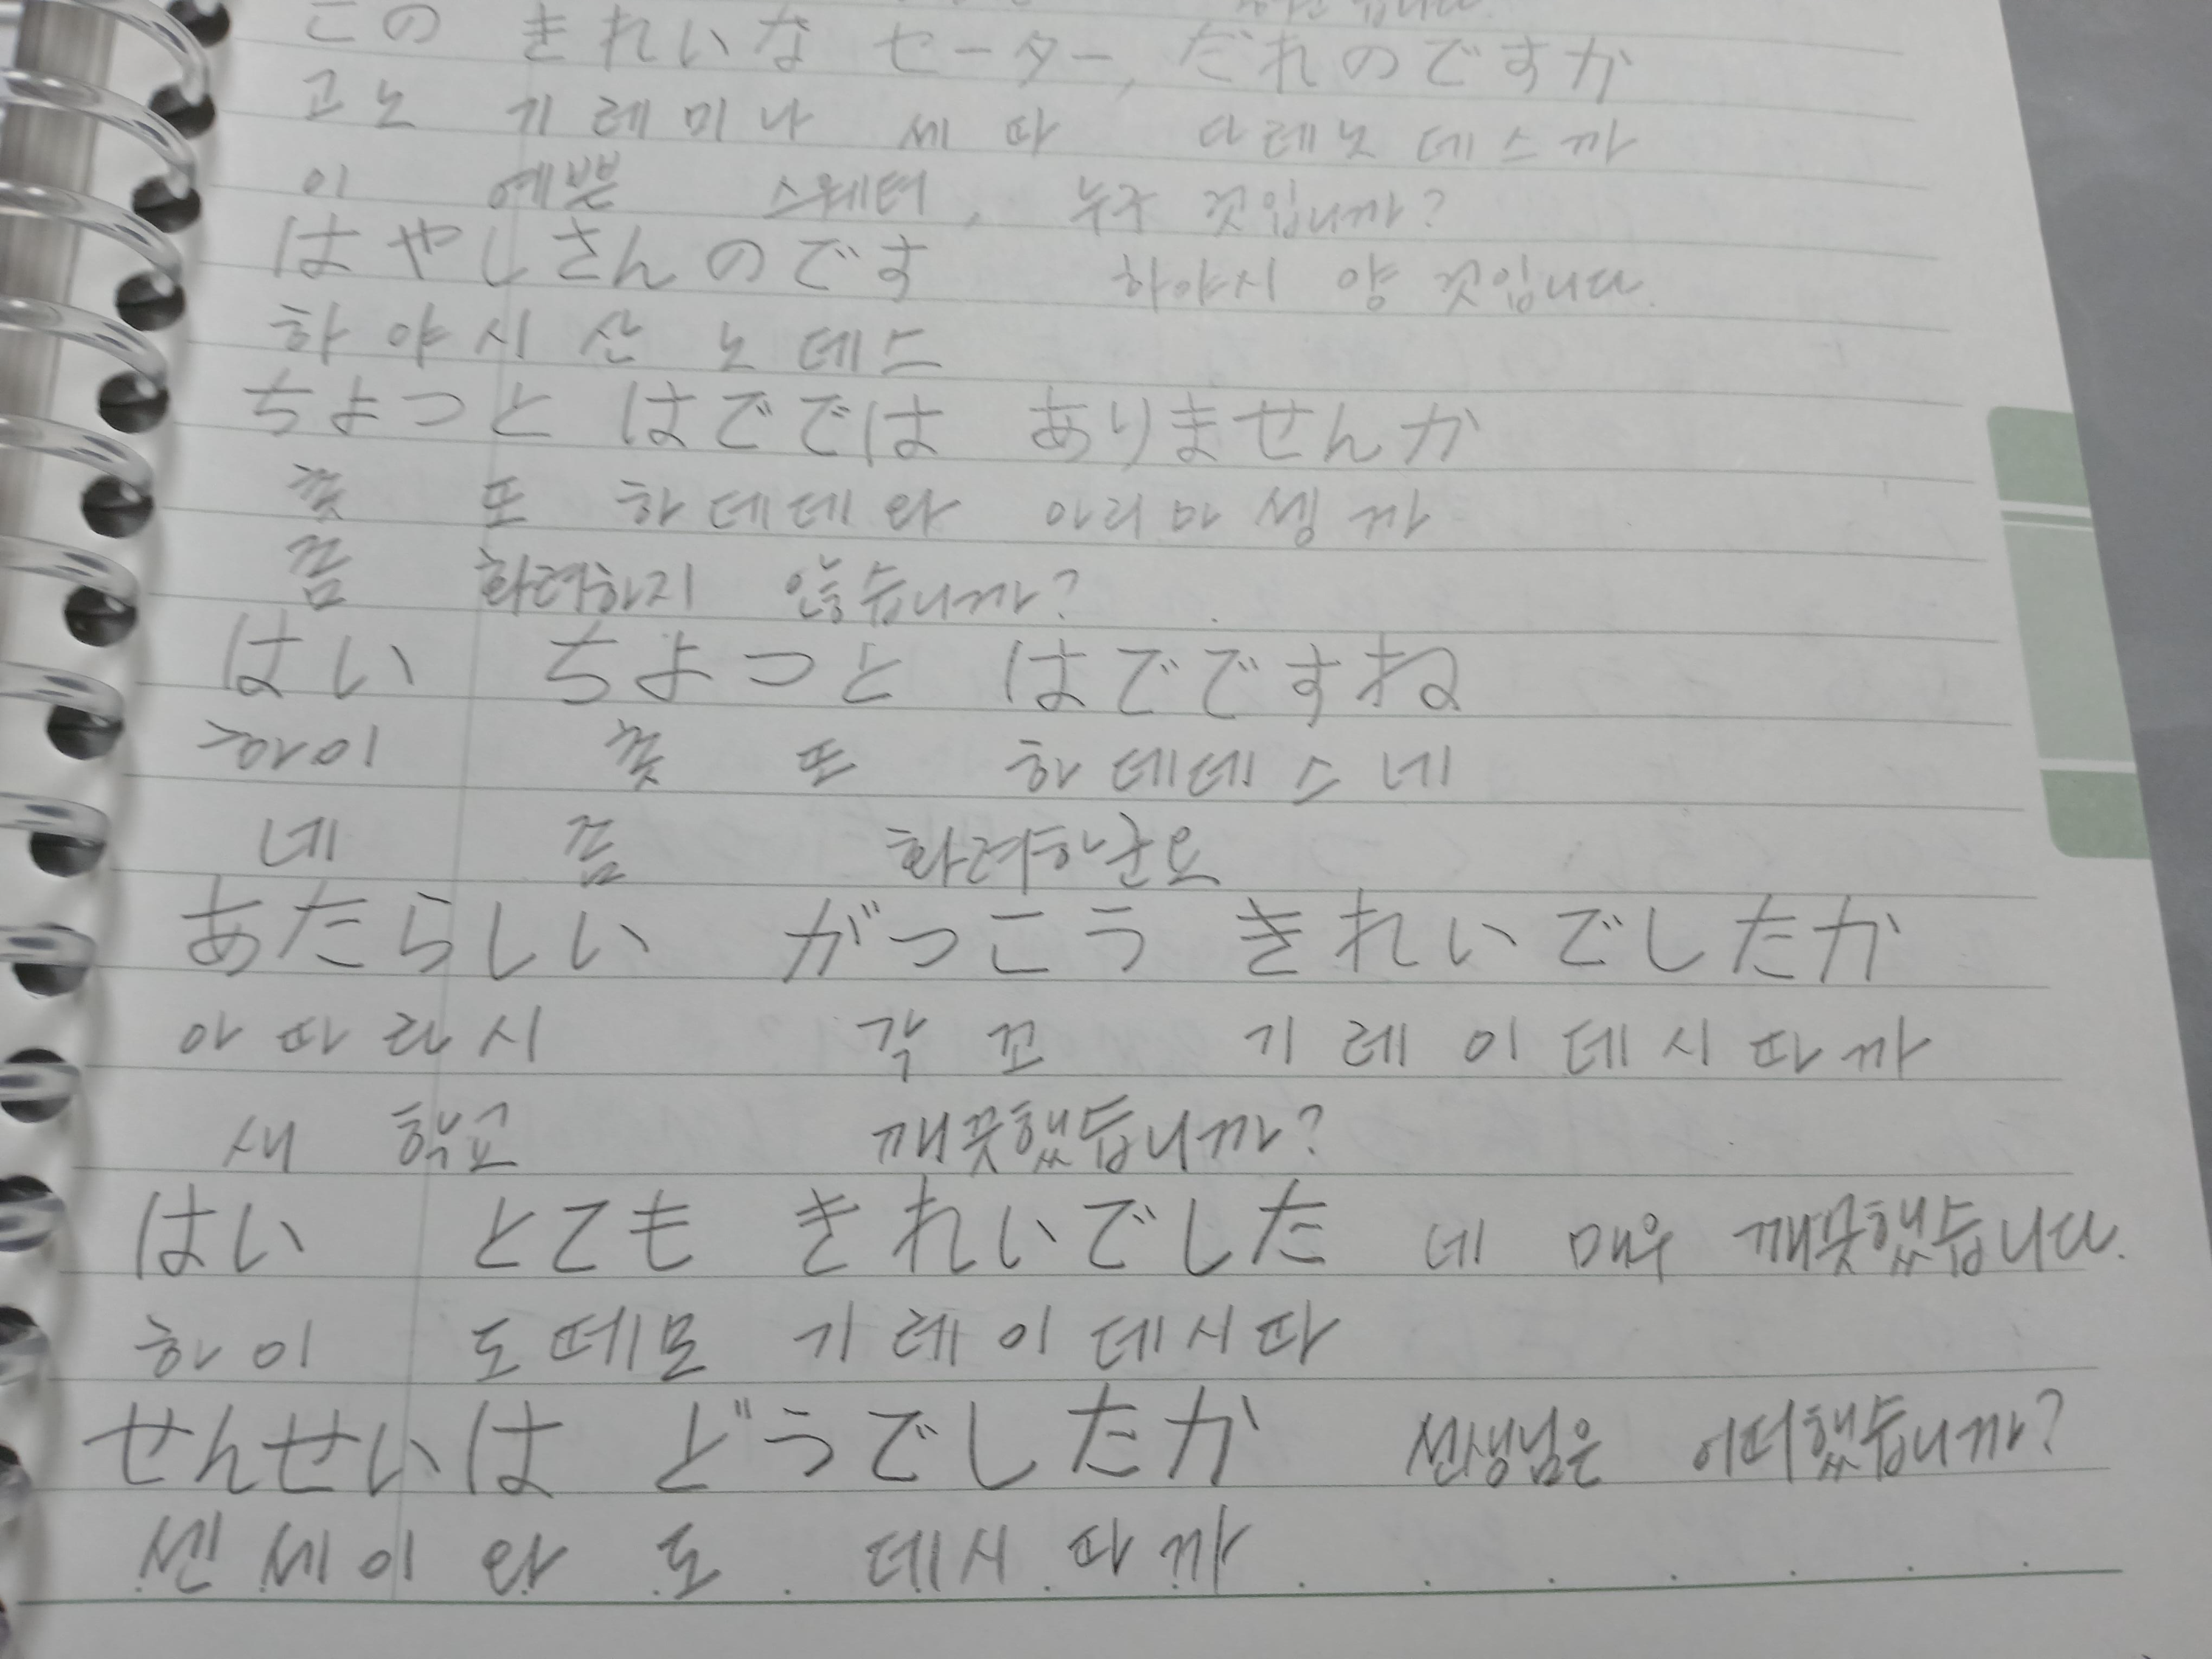 このきれいな セーター, だれのですか
고노 기레미나 쎄따 다레노데스까
이 예쁜 스웨터, 누구 것입니까?
はやしさんのです 하야시 양 것입니다.
하야시산노데스
ちよつと はででは ありませんか
쫏또 하데데와 아리마셍까
쫌 화려하지 않습니까?
はい ちよつと はでですね
하이 쫏또 하데데스네
네 쫌 화려하군요
あたらしい がつこう きれいでしたか
아따라시 각꼬 기레이데시따까
새 학교 깨끗했습니까?
はい とても きれいでした 네 매우 깨끗했습니다.
하이 도떼모 기레이데시따
せんせいは どうでしたか 선생님은 어떠했습니까?
센세이와 도 데시따까